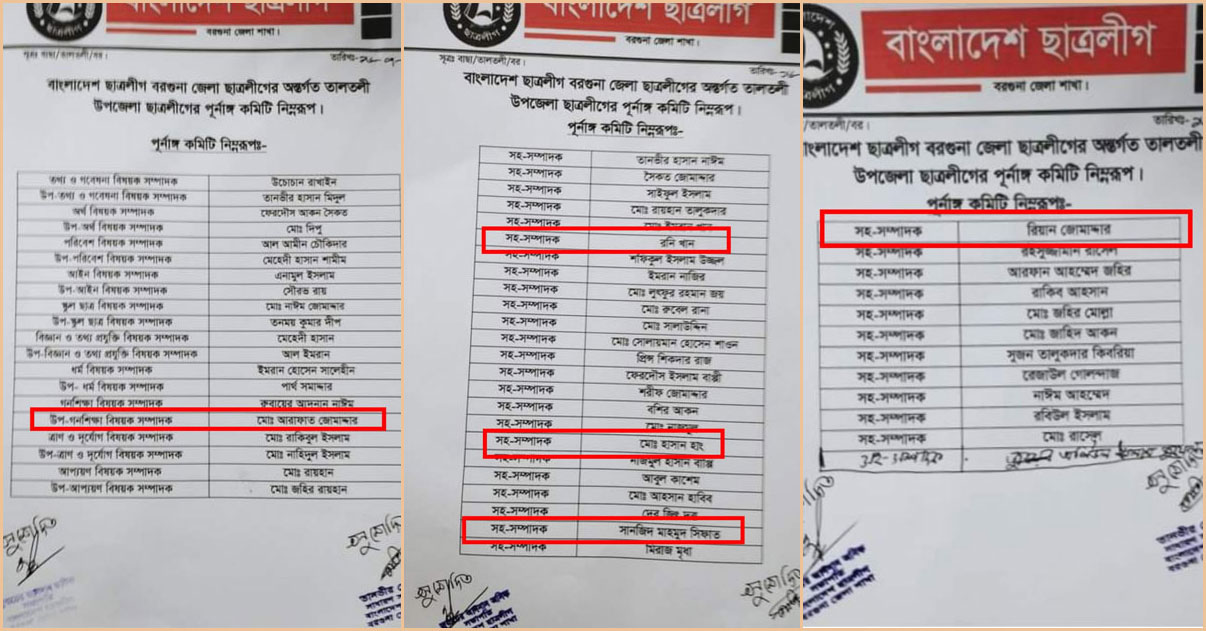 সূত্রঃ বাছা/তালতলী/বর।
তারিখ-
বাংলাদেশ ছাত্রলীগ বরগুনা জেলা ছাত্রলীগের অন্তর্গত তালতলী
উপজেলা ছাত্রলীগের পূর্নাঙ্গ কমিটি নিম্নরূপ।
পূর্নাঙ্গ কমিটি নিম্নরূপঃ-
তথ্য ও গবেষনা বিষয়ক সম্পাদক উচোচান রাখাইন
উপ-তথ্য ও গবেষনা বিষয়ক সম্পাদক তানভীর হাসান মিদুল
অর্থ বিষয়ক সম্পাদক ফেরদৌস আকন সৈকত
উপ-অর্থ বিষয়ক সম্পাদক মোঃ দিপু
পরিবেশ বিষয়ক সম্পাদক আল আমীন চৌকিদার
উপ-পরিবেশ বিষয়ক সম্পাদক মেহেদী হাসান শামীম
আইন বিষয়ক সম্পাদক এনামুল ইসলাম
উপ-আইন বিষয়ক সম্পাদক সৌরভ রায়
স্কুল ছাত্র বিষয়ক সম্পাদক মোঃ নাঈম জোমাদ্দার
উপ-স্কুল ছাত্র বিষয়ক সম্পাদক তনময় কুমার দীপ
বিজ্ঞান ও তথ্য প্রযুক্তি বিষয়ক সম্পাদক মেহেদী হাসান
উপ-বিজ্ঞান ও তথ্য প্রযুক্তি বিষয়ক সম্পাদক আল ইমরান
ধর্ম বিষয়ক সম্পাদক ইমরান হোসেন সালেহীন
উপ- ধর্ম বিষয়ক সম্পাদক পার্থ সমাদ্দার
গনশিক্ষা বিষয়ক সম্পাদক রুবায়ের আদনান নাঈম
উপ-গনশিক্ষা বিষয়ক সম্পাদক মোঃ আরাফাত জোমাদ্দার
ত্রাণ ও দূর্যোগ বিষয়ক সম্পাদক মোঃ রাকিবুল ইসলাম
উপ-ত্রাণ ও দূর্যোগ বিষয়ক সম্পাদক মোঃ নাহিদুল ইসলাম
আপ্যায়ণ বিষয়ক সম্পাদক মোঃ রায়হান
উপ-আপ্যায়ণ বিষয়ক সম্পাদক মোঃ জহির রায়হান
অনুমোদিত
বাংলাদেশ ছাত্রলীগ
বরগুনা জেলা শাখা।
সূত্রঃ বাছা/তালতলী/বর।
তারিখ-
বাংলাদেশ ছাত্রলীগ বরগুনা জেলা ছাত্রলীগের অন্তর্গত তালতলী
উপজেলা ছাত্রলীগের পূর্নাঙ্গ কমিটি নিম্নরূপ।
পূর্নাঙ্গ কমিটি নিম্নরূপঃ-
সহ-সম্পাদক তানভীর হাসান নাঈম
সহ-সম্পাদক সৈকত জোমাদ্দার
সহ-সম্পাদক সাইফুল ইসলাম
সহ-সম্পাদক মোঃ রায়হান তালুকদার
সহ-সম্পাদক মোঃ ইমরান খান
সহ-সম্পাদক রনি খান
সহ-সম্পাদক শফিকুল ইসলাম উজ্জল
সহ-সম্পাদক ইমরান নাজির
সহ-সম্পাদক মোঃ লুৎফুর রহমান জয়
সহ-সম্পাদক মোঃ রুবেল রানা
সহ-সম্পাদক মোঃ সালাউদ্দিন
সহ-সম্পাদক মোঃ সোলায়মান হোসেন শাওন
সহ-সম্পাদক প্রিন্স শিকদার রাজ
সহ-সম্পাদক ফেরদৌস ইসলাম বাপ্পী
সহ-সম্পাদক শরীফ জোমাদ্দার
সহ-সম্পাদক বশির আকন
সহ-সম্পাদক মোঃ নাজমুল
সহ-সম্পাদক মোঃ হাসান হাং
সহ-সম্পাদক নাজমুল হাসান বাপ্পি
সহ-সম্পাদক আবুল কাশেম
সহ-সম্পাদক মোঃ আহসান হাবিব
সহ-সম্পাদক
সহ-সম্পাদক সানজিদ মাহমুদ সিফাত
সহ-সম্পাদক মিরাজ মৃধা
অনুমোদিত
বাংলাদেশ ছাত্রলীগ
বরগুনা জেলা শাখা।
/তালতলী/বর।
তারিখ-
বাংলাদেশ ছাত্রলীগ বরগুনা জেলা ছাত্রলীগের অন্তর্গত তালতলী
উপজেলা ছাত্রলীগের পূর্নাঙ্গ কমিটি নিম্নরূপ।
পূর্নাঙ্গ কমিটি নিম্নরূপঃ-
সহ-সম্পাদক রিয়ান জোমাদ্দার
সহ-সম্পাদক রইসুজ্জামান রাসেল
সহ-সম্পাদক আরফান আহম্মেদ জহির
সহ-সম্পাদক রাকিব আহসান
সহ-সম্পাদক মোঃ জহির মোল্লা
সহ-সম্পাদক মোঃ জাহিদ আকন
সহ-সম্পাদক সুজন তালুকদার কিবরিয়া
সহ-সম্পাদক রেজাউল গোলন্দাজ
সহ-সম্পাদক নাঈম আহমেদ
সহ-সম্পাদক রবিউল ইসলাম
সহ-সম্পাদক মোঃ রাসেল
সহ-সম্পাদক